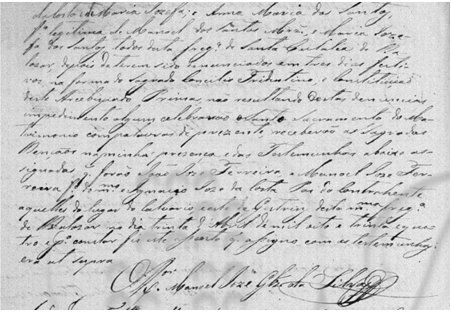 da Costa e Maria Jozefa; e Anna Maria dos Santos,
f.ª legitima de Manoel dos Santos Mbrao, e Maria Joze-
fa dos Santos, todos desta freg.ª de Santa Eulalia de Ba-
lasar depois de terem sido denunciados em tres dias festi-
vos, na forma do Sagrado Concilio Tridentino, e Constituiçao
deste Arcebispado Primas, nao resultando destas denuncias
impedimento algum celebrarao o Santo Sacramento do Ma-
trimonio com palavras de prezente receberao as sagradas
Bençaos na minha presença e das Testemunhas abaixo as-
signadas q. forao Joao Joze Ferreira, e Manoel Joze Fer-
reira f.º do m.mo Ignacio Joze da Costa Pai do Contrahente
aquelles do lugar do Calvario, este de Gestrins desta m.ma freg.ª
de Balasar no dia trinta d'Abril de mil oito e trinta e qua-
tro e p.ª constar fis este assento q. assigno com as testemunhas
era ut supra
O P.or
Manoel Joze Glz da Silva